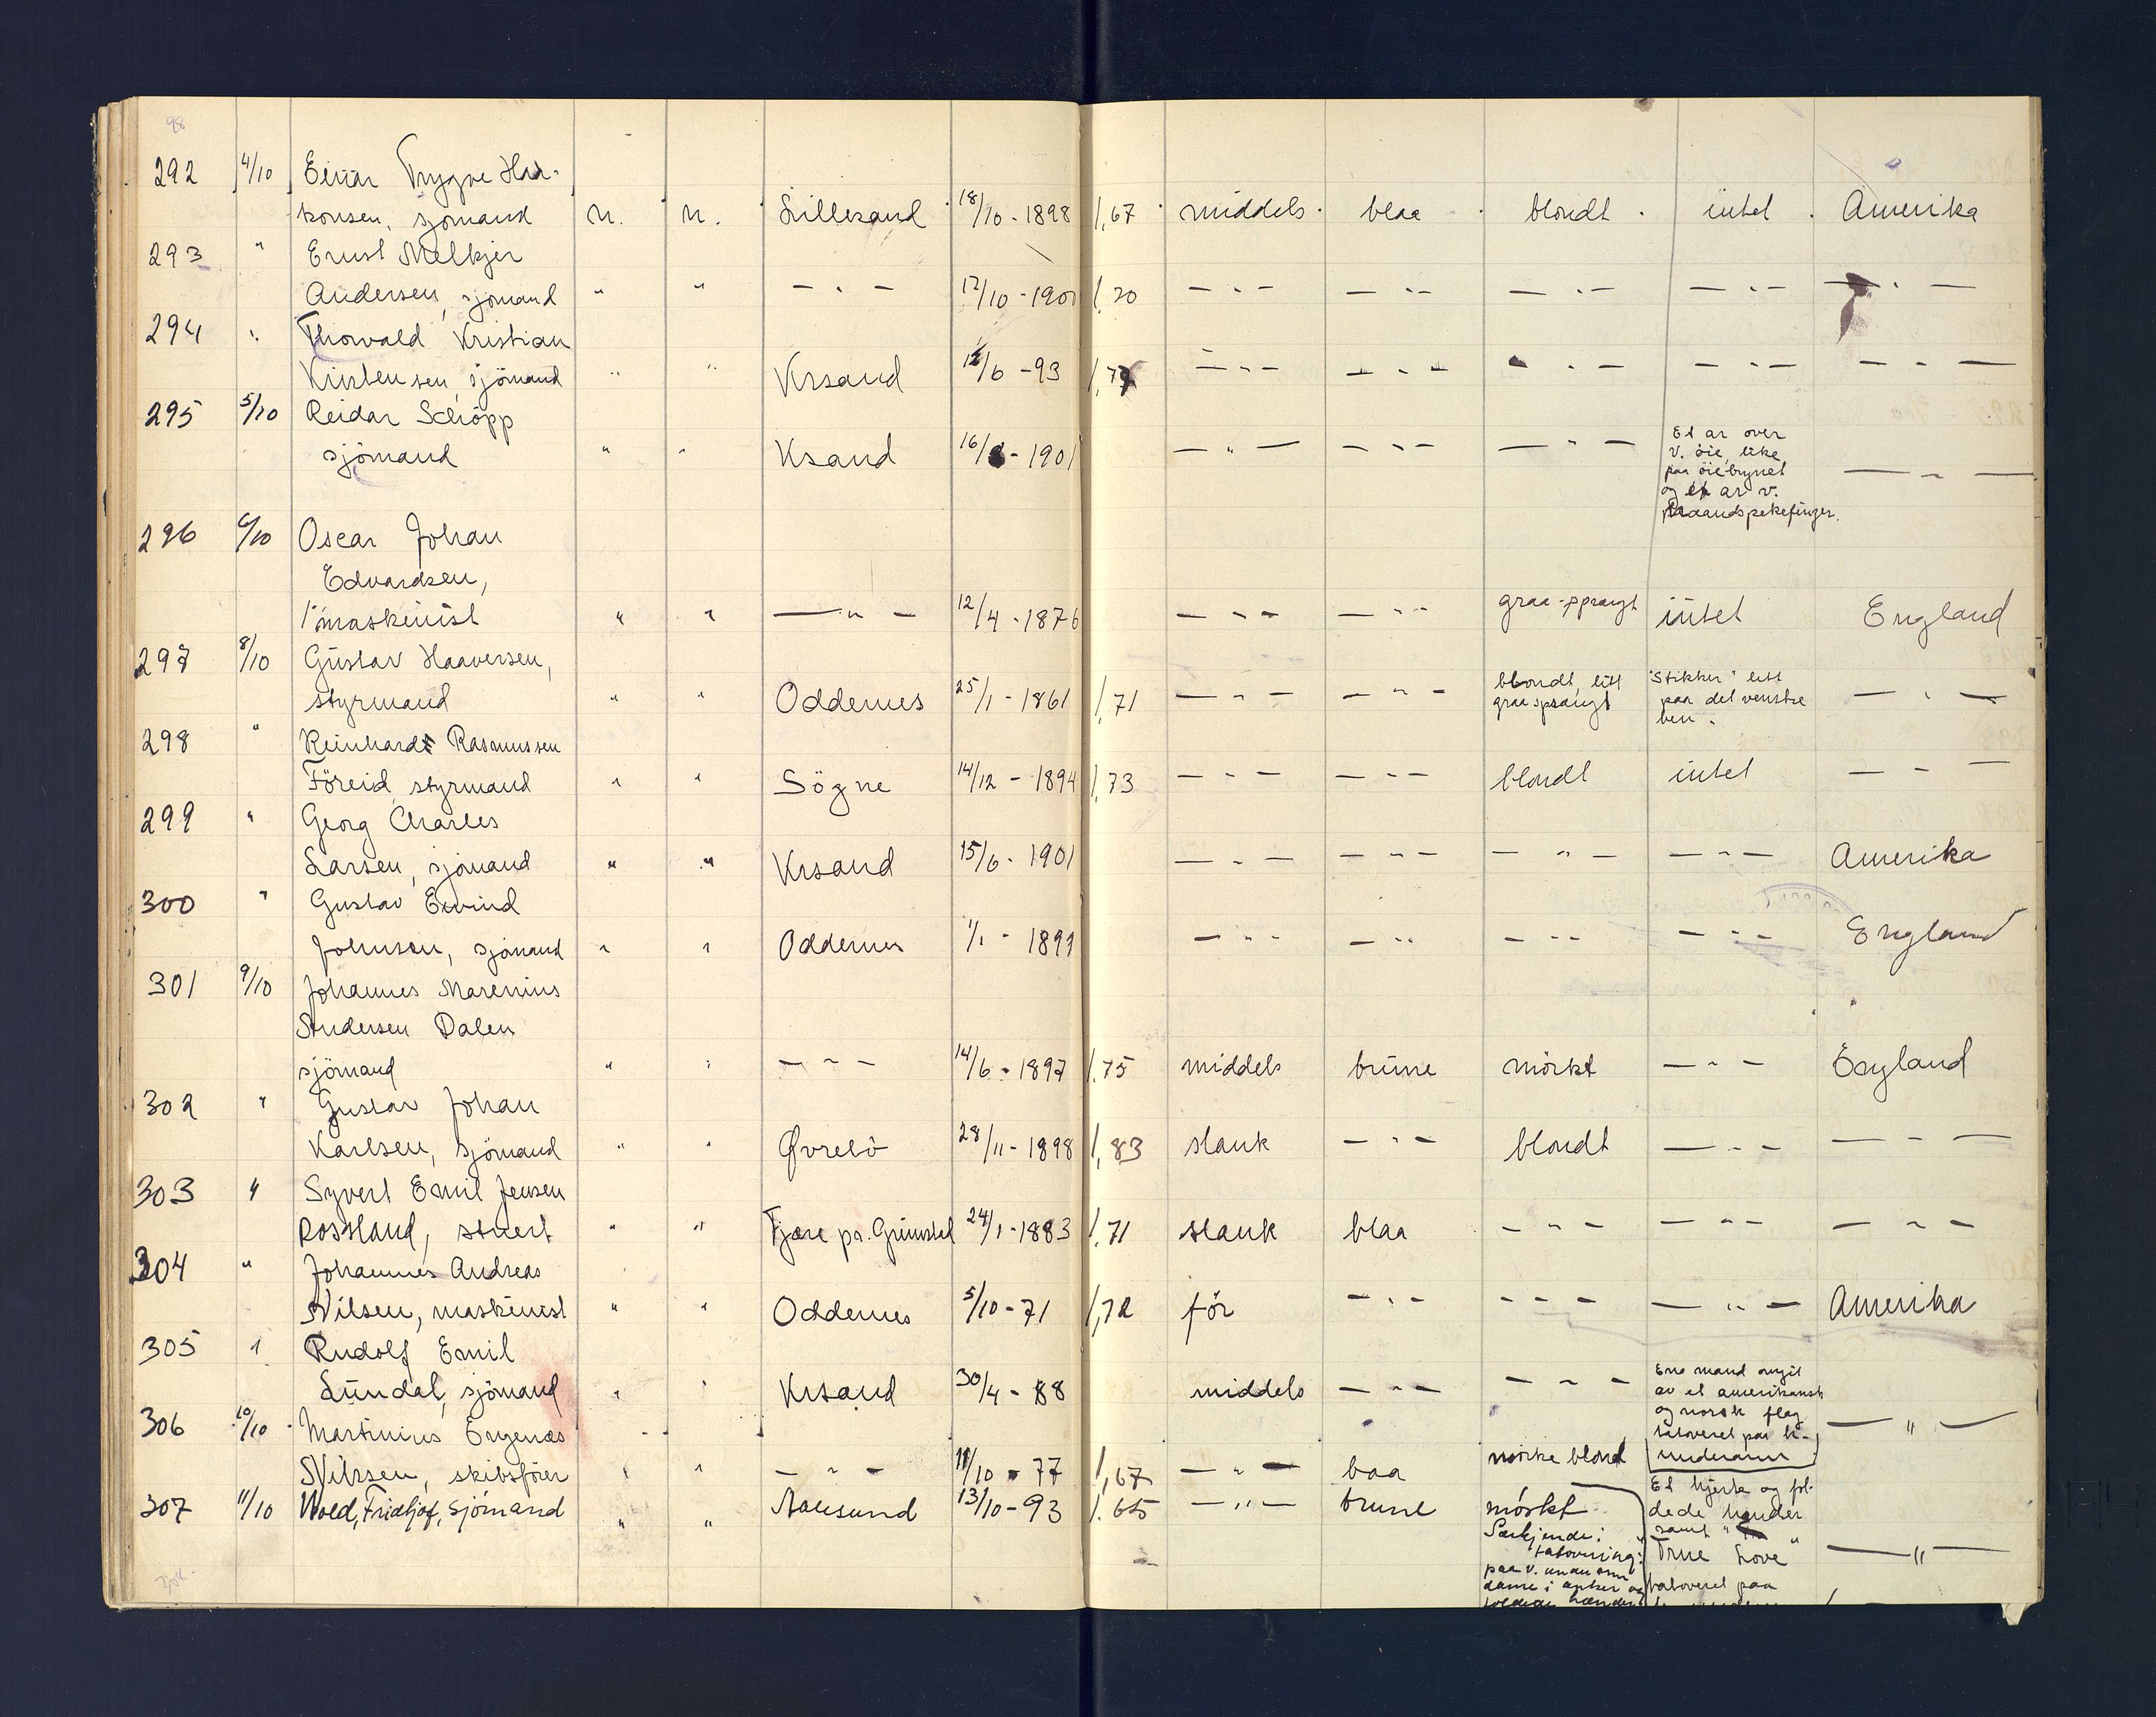 98
292 4/10 Einar Trygve Haa-
konsen, sjömand n. n. Lillesand 18/10 - 1898 1,67 middels blaa blondt intet Amerika
293 " Ernst Melkjer
Andersen, sjömand " " — " — 12/10 - 1900 1,70 — " — — " — — " — — " — — " —
294 " Thorvald Kristian
Kristensen, sjömand " " Krsand 12/6 - 93 1,77 — " — — " — — " — — " — — " —
295 5/10 Reidar Schöpp
sjömand " " Ksand 16/8 - 1901 — " — — " — — " — Et ar over
v. öie, like
paa öiebrynet
og et ar v.
haandspekefinger. — " —
296 6/10 Oscar Johan
Edvardsen,
1' maskinist " " — " — 12/4 - 1876 — " — — " — graa-sprængt intet England
297 8/10 Gustav Haaversen,
styrmand " " Oddernes 25/1 - 1861 1,71 — " — — " — blondt, litt
graasprængt "Stikker" litt
paa det venstre
ben. — " —
298 " Reinhardt Rasmussen
Föreid, styrmand " " Sögne 14/12 - 1894 1,73 — " — — " — blondt intet — " —
299 " Georg Charles
Larsen, sjömand " " Krsand 15/6 - 1901 — " — — " — — " — — " — Amerika
300 " Gustav Eivind
Johnsen, sjömand " " Oddernes 1/1 - 1899 — " — — " — — " — — " — England
301 9/10 Johannes Marenius
Andersen Dalen
sjömand " " — " — 14/6 - 1897 1,75 middels brune mörkt — " — England
302 " Gustav Johan
Karlsen, sjömand " " Øvrebö 28/11 - 1898 1,83 slank — " — blondt — " — — " —
303 " Syvert Emil Jensen
Rossland, stuert " " Fjære pr. Grimstad 24/1 - 1883 1,71 slank blaa — " — — " — — " —
304 " Johannes Andreas
Nilsen, maskinist " " Oddernes 5/10 - 71 1,72 för — " — — " — — " — Amerika
305 " Rudolf Emil
Lündal, sjömand " " Krsand 30/4 - 88 middels — " — — " — En mand omgit
av et amerikansk
og norsk flag
tatoveret paa h-
underarm — " —
306 10/10 Martinius Engenæs
Nilssen, skibsförer " " — " — 11/10 - 77 1,67 — " — baa mörke blond
307 11/10 Wold, Fridtjof, sjömand " " Aalesund 13/10 - 93 1.65 — " — brune mörkt
Særkjende:
tatovering:
paa v. underarm
dame i anker og
foldede hænder
Et hjerte og fol-
dede hænder
samt "
True Love"
tatoveret paa
— " —